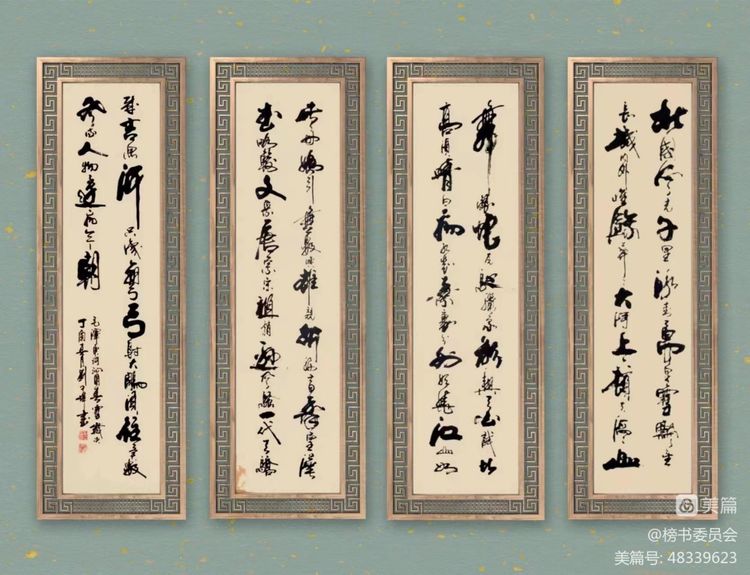 北国风光千里冰封万里雪飘望
长城内外惟餘莽莽大河上下顿失滔滔山
舞银蛇原驰蜡象欲与天公试比
高须晴日看红装素裹分外妖娆江山如
此多娇引无数英雄竞折腰惜秦皇汉
武略输文采唐宗宋祖稍逊风骚一代天骄
成吉思汗只识弯弓射大雕俱往矣数
风流人物还看今朝
毛泽东词沁园春雪
丁酉
美篇
@榜书委员会
美篇号: 48339623